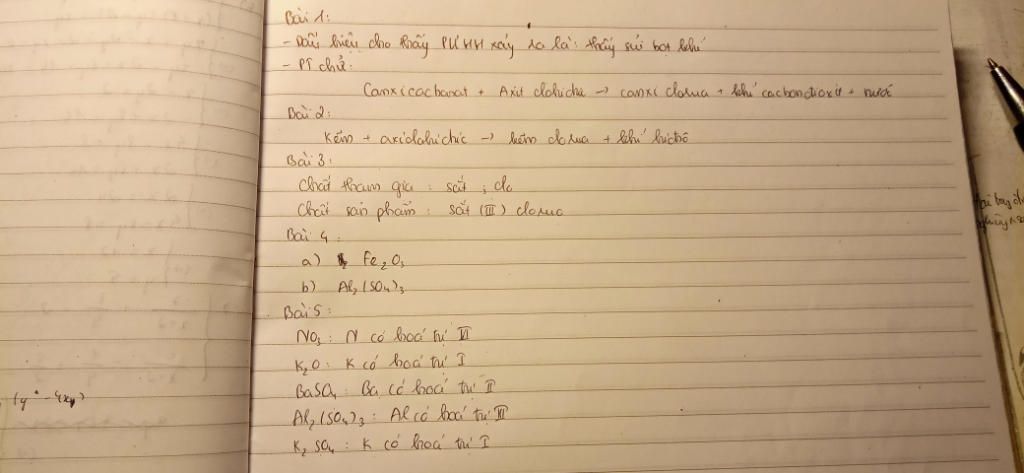 Bài 1:
- Dấu hiệu cho thấy PƯHH xảy ra là: thấy sủi bọt khí
- PT chữ:
Canxicacbonat + Axit clohiđric → canxi clorua + khí cacbondioxit + nước
Bài 2:
Kẽm + axit clohiđric → kẽm clorua + khí hiđrô
Bài 3:
Chất tham gia : sắt ; clo
Chất sản phẩm : sắt (III) clorua
Bài 4:
a) Fe₂O₃
b) Al₂(SO₄)₃
Bài 5:
NO₃: N có hoá trị VI
K₂O: K có hoá trị I
BaSO₄: Ba có hoá trị II
Al₂(SO₄)₃: Al có hoá trị III
K₂SO₄: K có hoá trị I